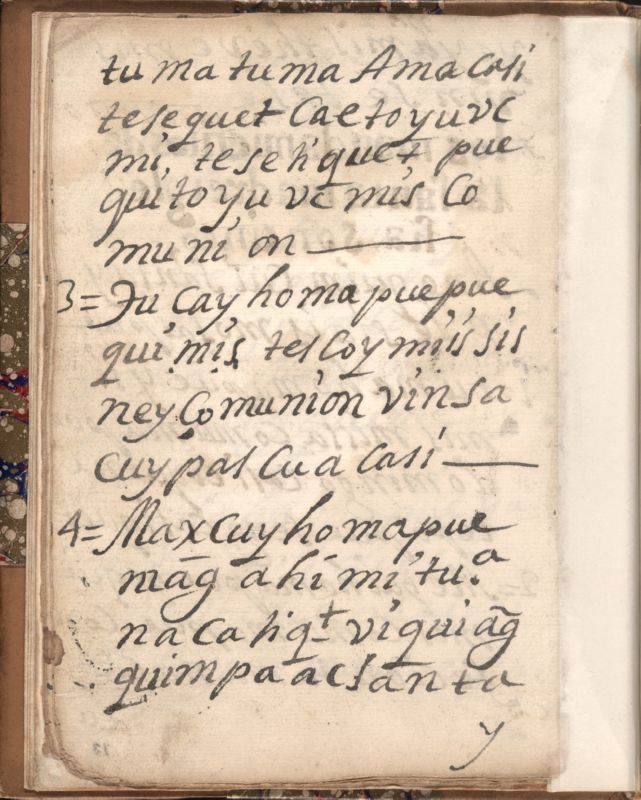 tu ma tuma Ama casi
tesequet Caetoyuve
mi, tesetiquet pue
quitoyu ve mis Co
muni on
3= Tu cay homa puepue
qui mis tescoy miissis
ney Comunion vinsa
cuypas Cua Casi
4= Maxcuy homapue
mag̃ ahi mi tu.ª
na ca tiqt viqui ag̃
quimpa acsanta
y